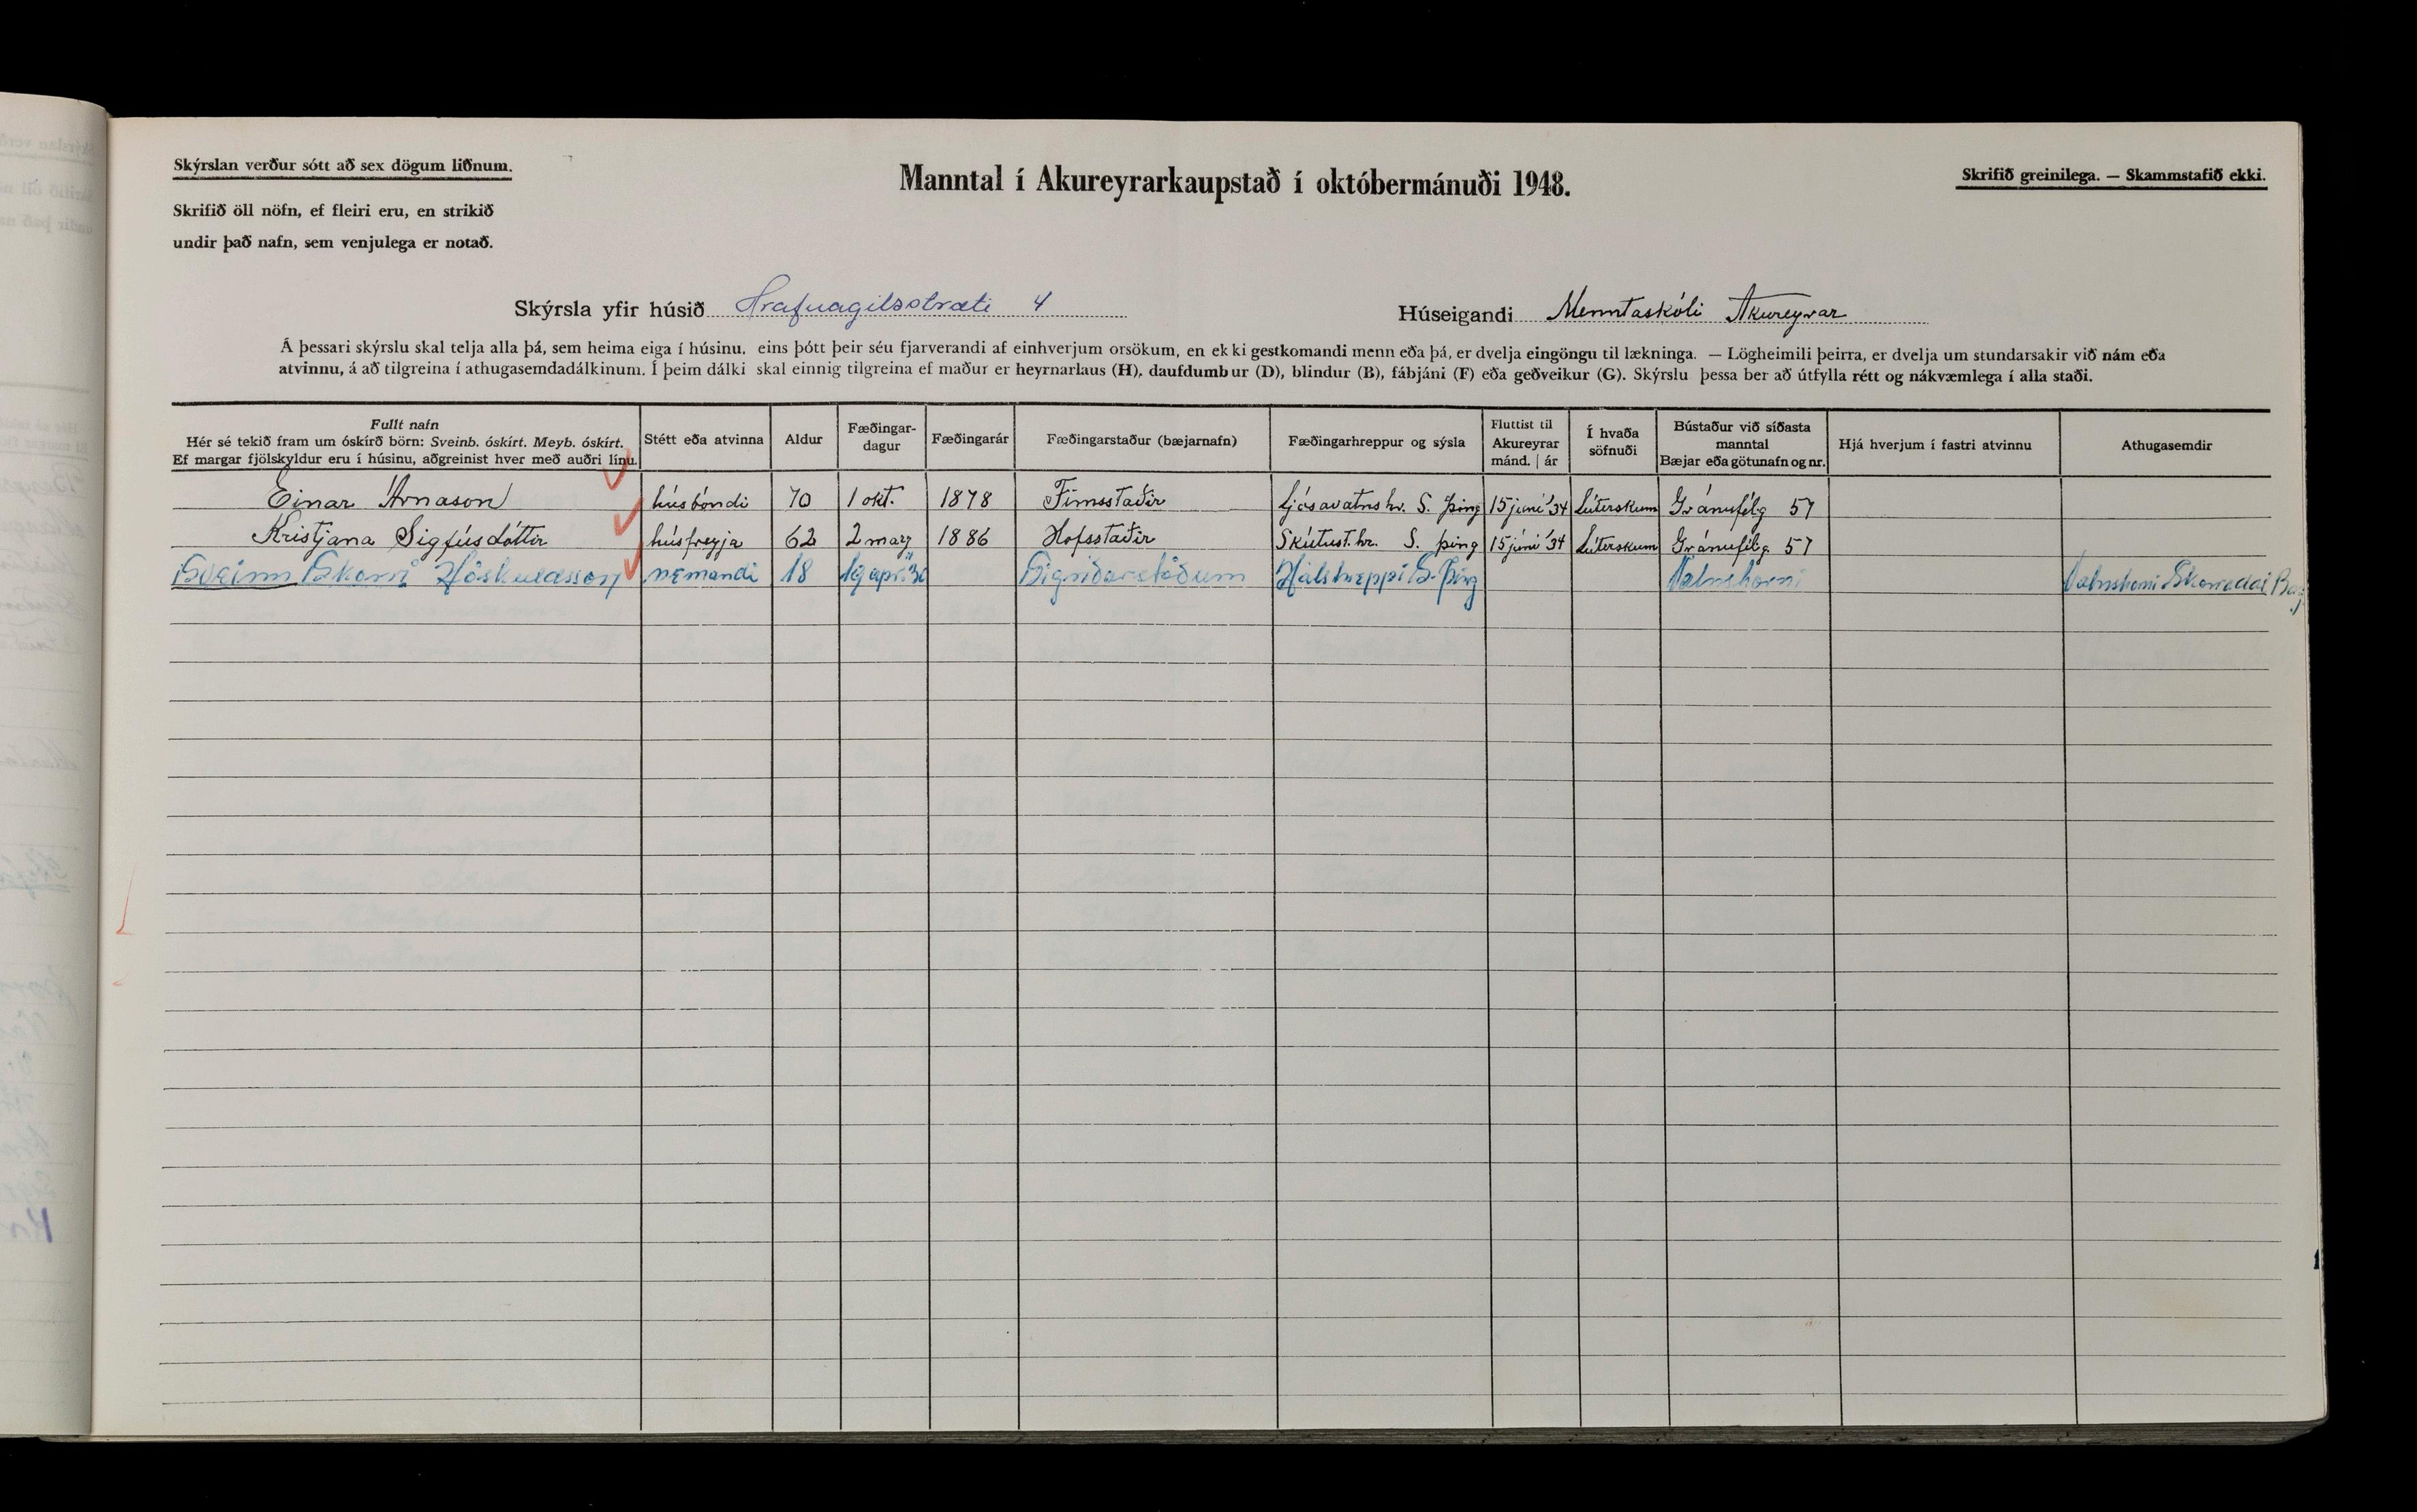 Skýrslan verður sótt að sex dögum liðnum.
Manntal í Akureyrarkaupstað í októbermánuði 1948.
Skrifið greinilega. — Skammstafið ekki.
Skrifið öll nöfn, ef fleiri eru, en strikið
undir það nafn, sem venjulega er notað.
Skýrsla yfir húsið Hrafnagilsstræti 4
Húseigandi Menntaskóli Akureyrar
Á þessari skýrslu skal telja alla þá, sem heima eiga í húsinu, eins þótt þeir séu fjarverandi af einhverjum orsökum, en ekki gestkomandi menn eða þá, er dvelja eingöngu til lækninga. — Lögheimili þeirra, er dvelja um stundarsakir við nám eða
atvinnu, á að tilgreina í athugasemdadálkinum. Í þeim dálki skal einnig tilgreina ef maður er heyrnarlaus (H), daufdumbur (D), blindur (B), fábjáni (F) eða geðveikur (G). Skýrslu þessa ber að útfylla rétt og nákvæmlega í alla staði.
Fullt nafn
Hér sé tekið fram um óskírð börn: Sveinb. óskírt. Meyb. óskírt.
Ef margar fjölskyldur eru í húsinu, aðgreinist hver með auðri línu.
Stétt eða atvinna
Aldur
Fæðingar-
dagur
Fæðingarár
Fæðingarstaður (bæjarnafn)
Fæðingarhreppur og sýsla
Fluttist til
Akureyrar
mánd. | ár
Í hvaða
söfnuði
Bústaður við síðasta
manntal
Bæjar eða götunafn og nr.
Hjá hverjum í fastri atvinnu
Athugasemdir
Einar Árnason húsbóndi 70 1 okt. 1878 Finnsstaðir Ljósavatnshr. S. Þing 15 júní '34 Lúterskum Gránufélg 57
Kristjana Sigfúsdóttir húsfreyja 62 2 marz 1886 Hofsstaðir Skútust.hr. S. Þing 15 júní '34 Lúterskum Gránufélg. 57
Sveinn Skorri Höskuldsson nemandi 18 19 apríl '30 Sigríðarstöðum Hálshreppi S-Þing Vatnshorni Vatnshorni Skorradal